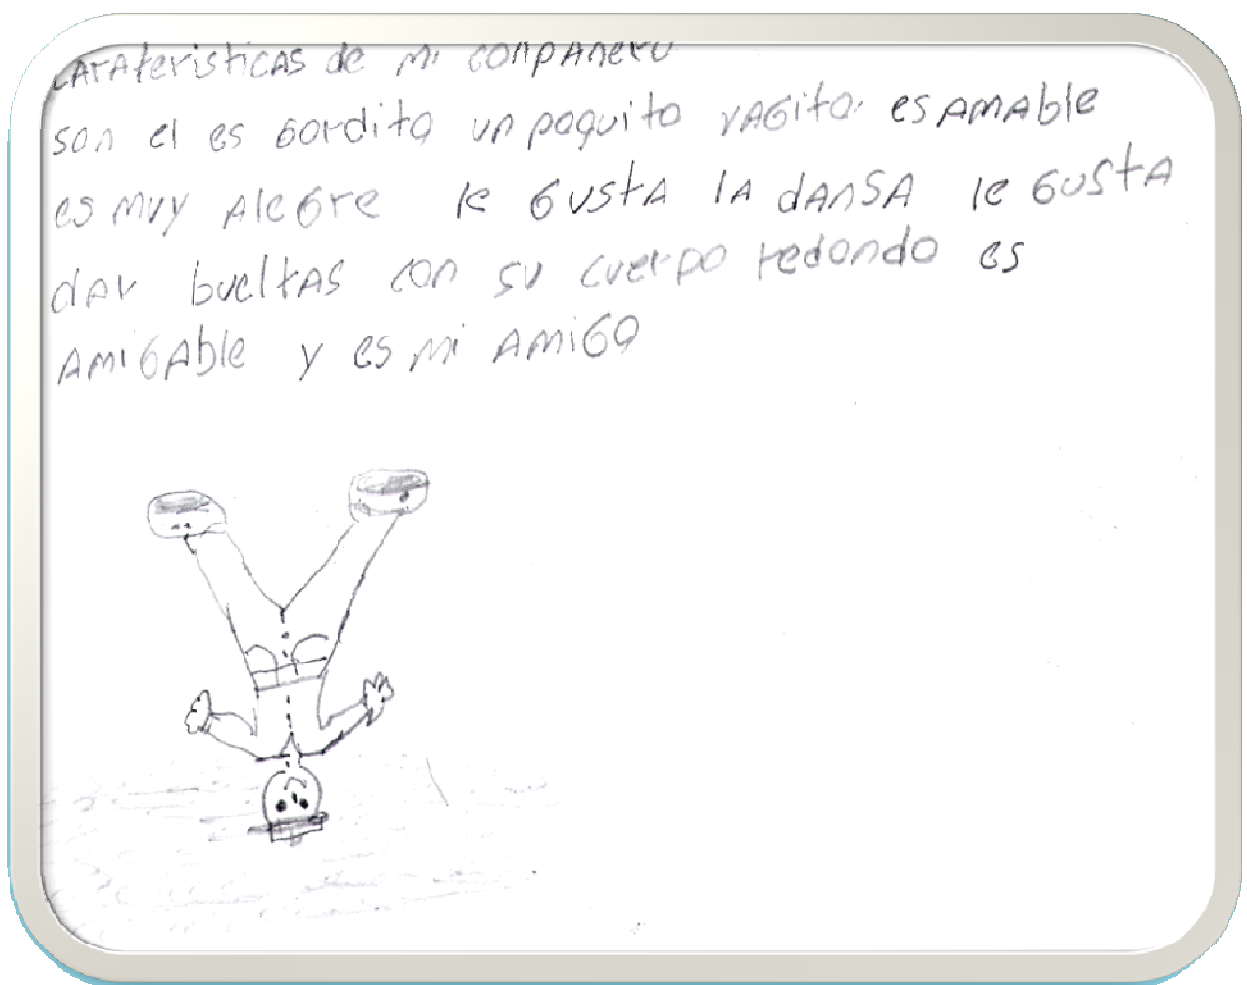 CARAteristicAS de mi conpAñero
son el es Gordito un poquito vAGito es AMAble
es Muy Ale6re le 6ustA lA dAnSA le 6UStA
dAr bueltAS con su cuerpo redondo es
AMi6Able y es mi AMi6o